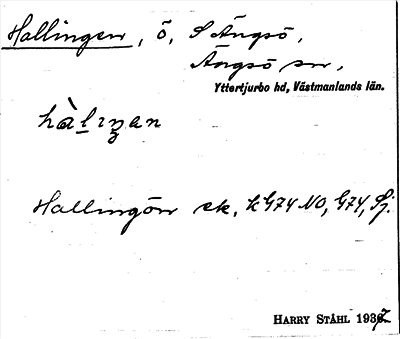 Hallingen, ö, S Ängsö,
Ängsö sn,
Yttertjurbo hd, Västmanlands län.
hàlıŋan
Hallingön ek, kG74 NO, G74, Sj.
HARRY STÅHL 1937